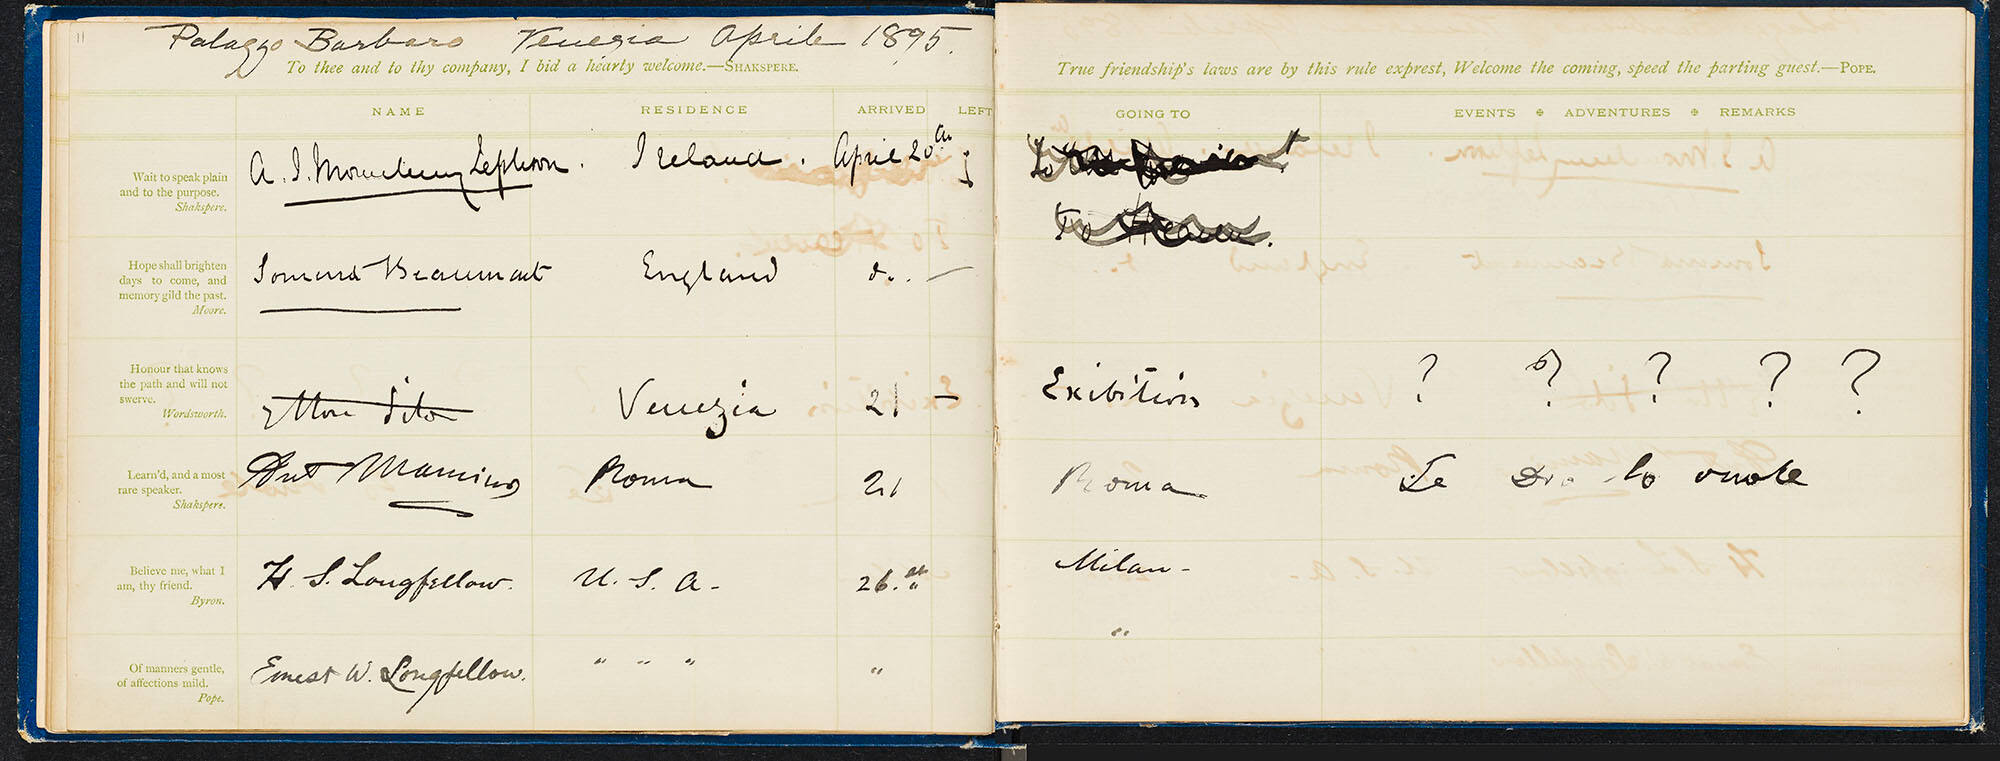 11
Palazzo Barbaro Venezia Aprile 1895.
To thee and to thy company, I bid a hearty welcome.—SHAKSPERE.
True friendship's laws are by this rule exprest, Welcome the coming, speed the parting guest.—POPE.
NAME RESIDENCE ARRIVED LEFT GOING TO EVENTS ADVENTURES REMARKS
Wait to speak plain
and to the purpose.
Shakspere.
A. J. Ireland. April 20th
To
To Heaven.
Hope shall brighten
days to come, and
memory gild the past.
Moore.
Somerset Beaumont England do. —
Honour that knows
the path and will not
swerve.
Wordsworth.
Ettore Tito Venezia 21 — Exibition ? ? ? ? ?
Learn'd, and a most
rare speaker.
Shakspere.
Ant Mancini Roma 21 Roma Se Dio lo vuole
Believe me, what I
am, thy friend.
Byron.
H. S. Longfellow. U. S. A- 26. Milan-
Of manners gentle,
of affections mild.
Pope.
Ernest W. Longfellow. " " " " "